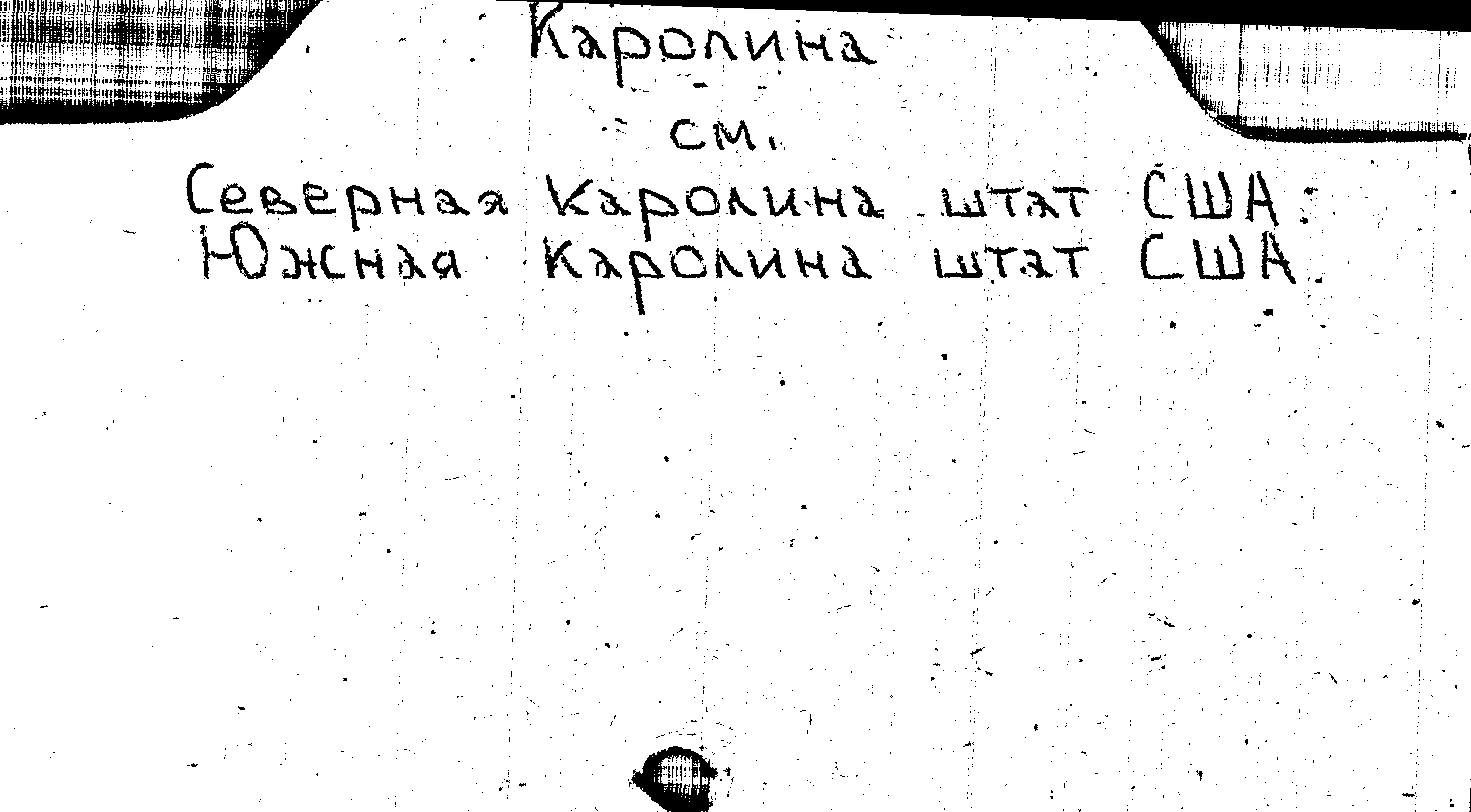 Каролина
см.
Северная Каролина штат США.
Южная Каролина штат США.